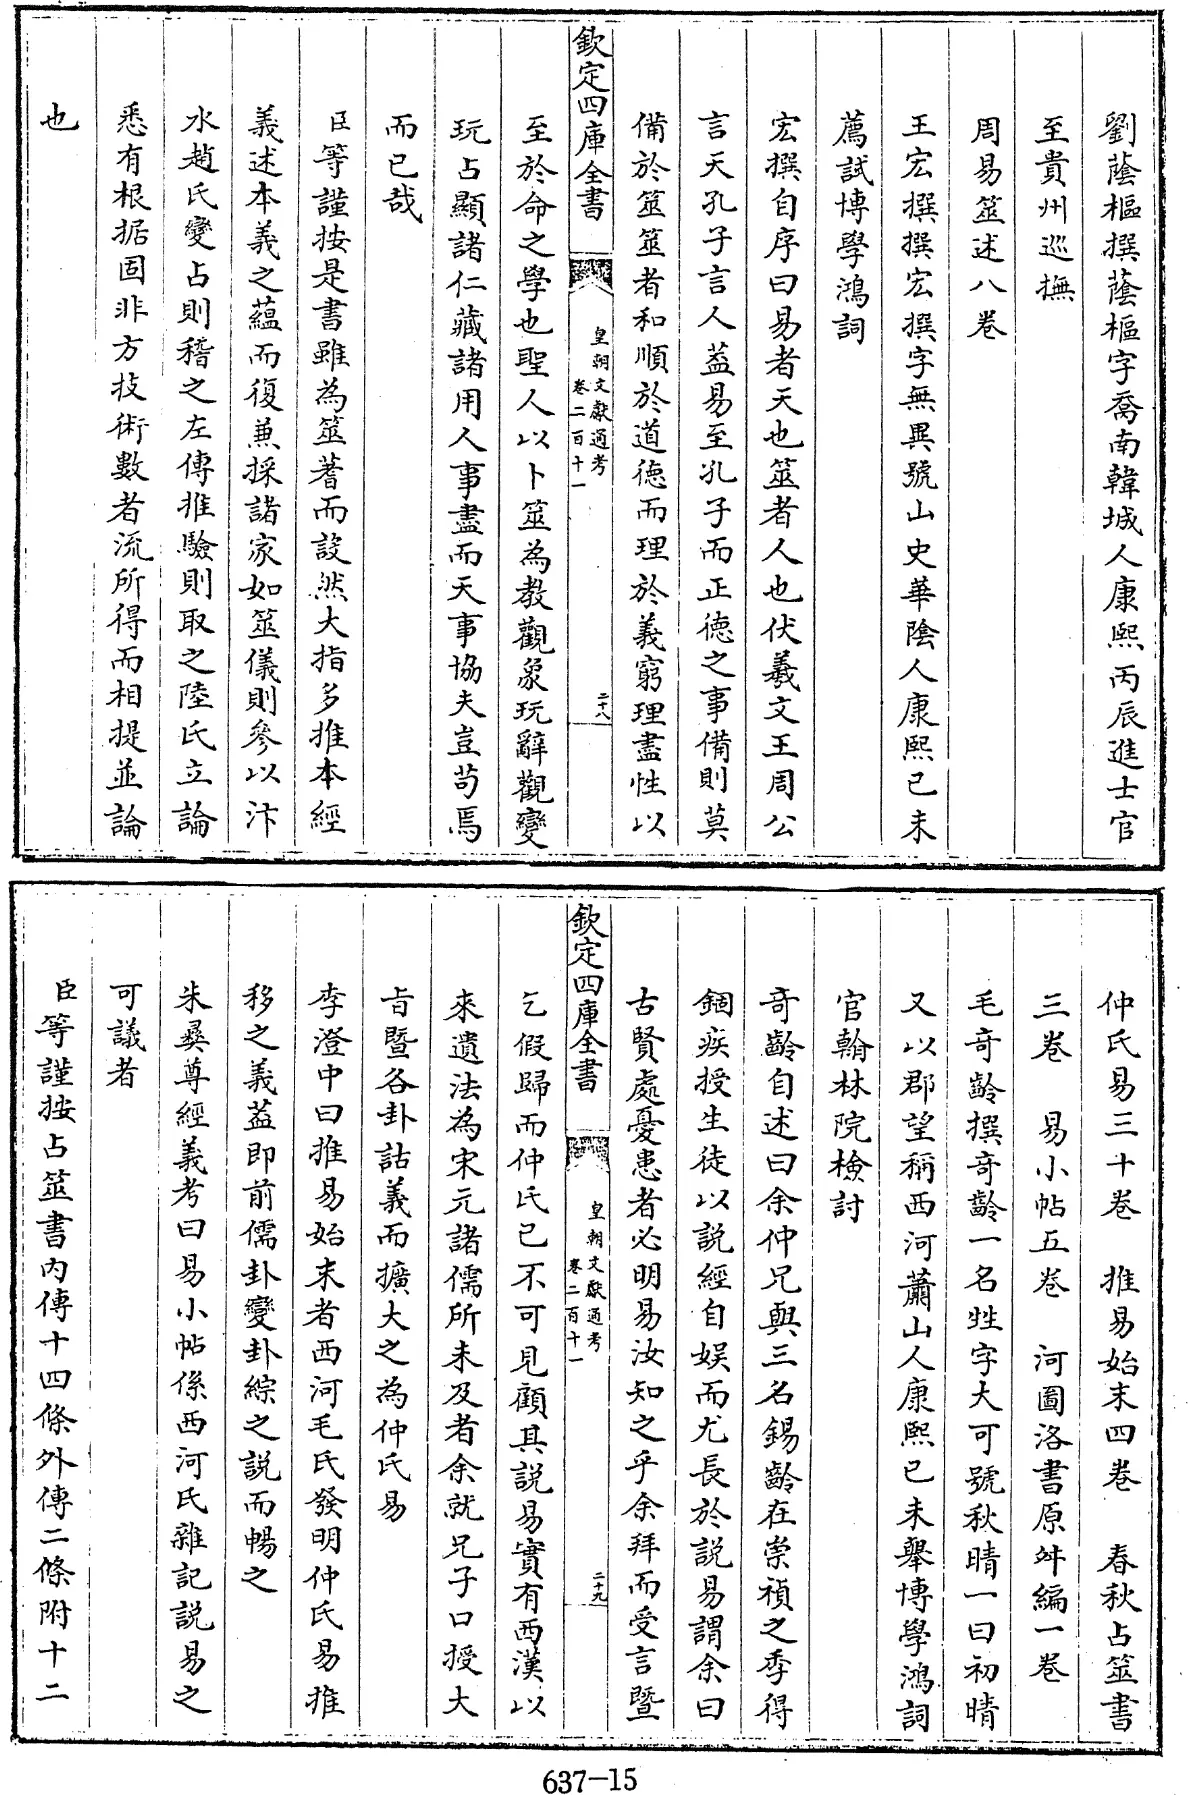 劉蔭樞撰蔭樞字喬南韓城人康熙丙辰進士官
至貴州巡撫
周易筮述八卷
王宏撰撰宏撰字無異號山史華陰人康熙已未
薦試博學鴻詞
宏撰自序曰易者天也筮者人也伏羲文王周公
言天孔子言人蓋易至孔子而正德之事備則莫
備於筮筮者和順於道德而理於義窮理盡性以
欽定四庫全書
皇朝文獻通考
卷二百十一
二十八
至於命之學也聖人以卜筮為教觀象玩辭觀變
玩占顯諸仁藏諸用人事盡而天事協夫豈苟焉
而已哉
臣等謹按是書雖為筮蓍而設然大指多推本經
義述本義之蘊而復兼採諸家如筮儀則參以汴
水趙氏變占則稽之左傳推驗則取之陸氏立論
悉有根据固非方技術數者流所得而相提並論
也
仲氏易三十卷 推易始末四卷 春秋占筮書
三卷 易小帖五卷 河圖洛書原舛編一卷
毛奇齡撰奇齡一名甡字大可號秋晴一曰初晴
又以郡望稱西河蕭山人康熙已未舉博學鴻詞
官翰林院檢討
奇齡自述曰余仲兄與三名錫齡在崇禎之季得
錮疾授生徒以說經自娱而尤長於說易謂余曰
古賢處憂患者必明易汝知之乎余拜而受言暨
欽定四庫全書
皇朝文獻通考
卷二百十一
二十九
乞假歸而仲氏已不可見顧其說易實有西漢以
來遺法為宋元諸儒所未及者余就兄子口授大
旨暨各卦詁義而擴大之為仲氏易
李澄中曰推易始末者西河毛氏發明仲氏易推
移之義蓋即前儒卦變卦綜之説而暢之
朱彝尊經義考曰易小帖係西河氏雜記説易之
可議者
臣等謹按占筮書內傳十四條外傳二條附十二
637-15